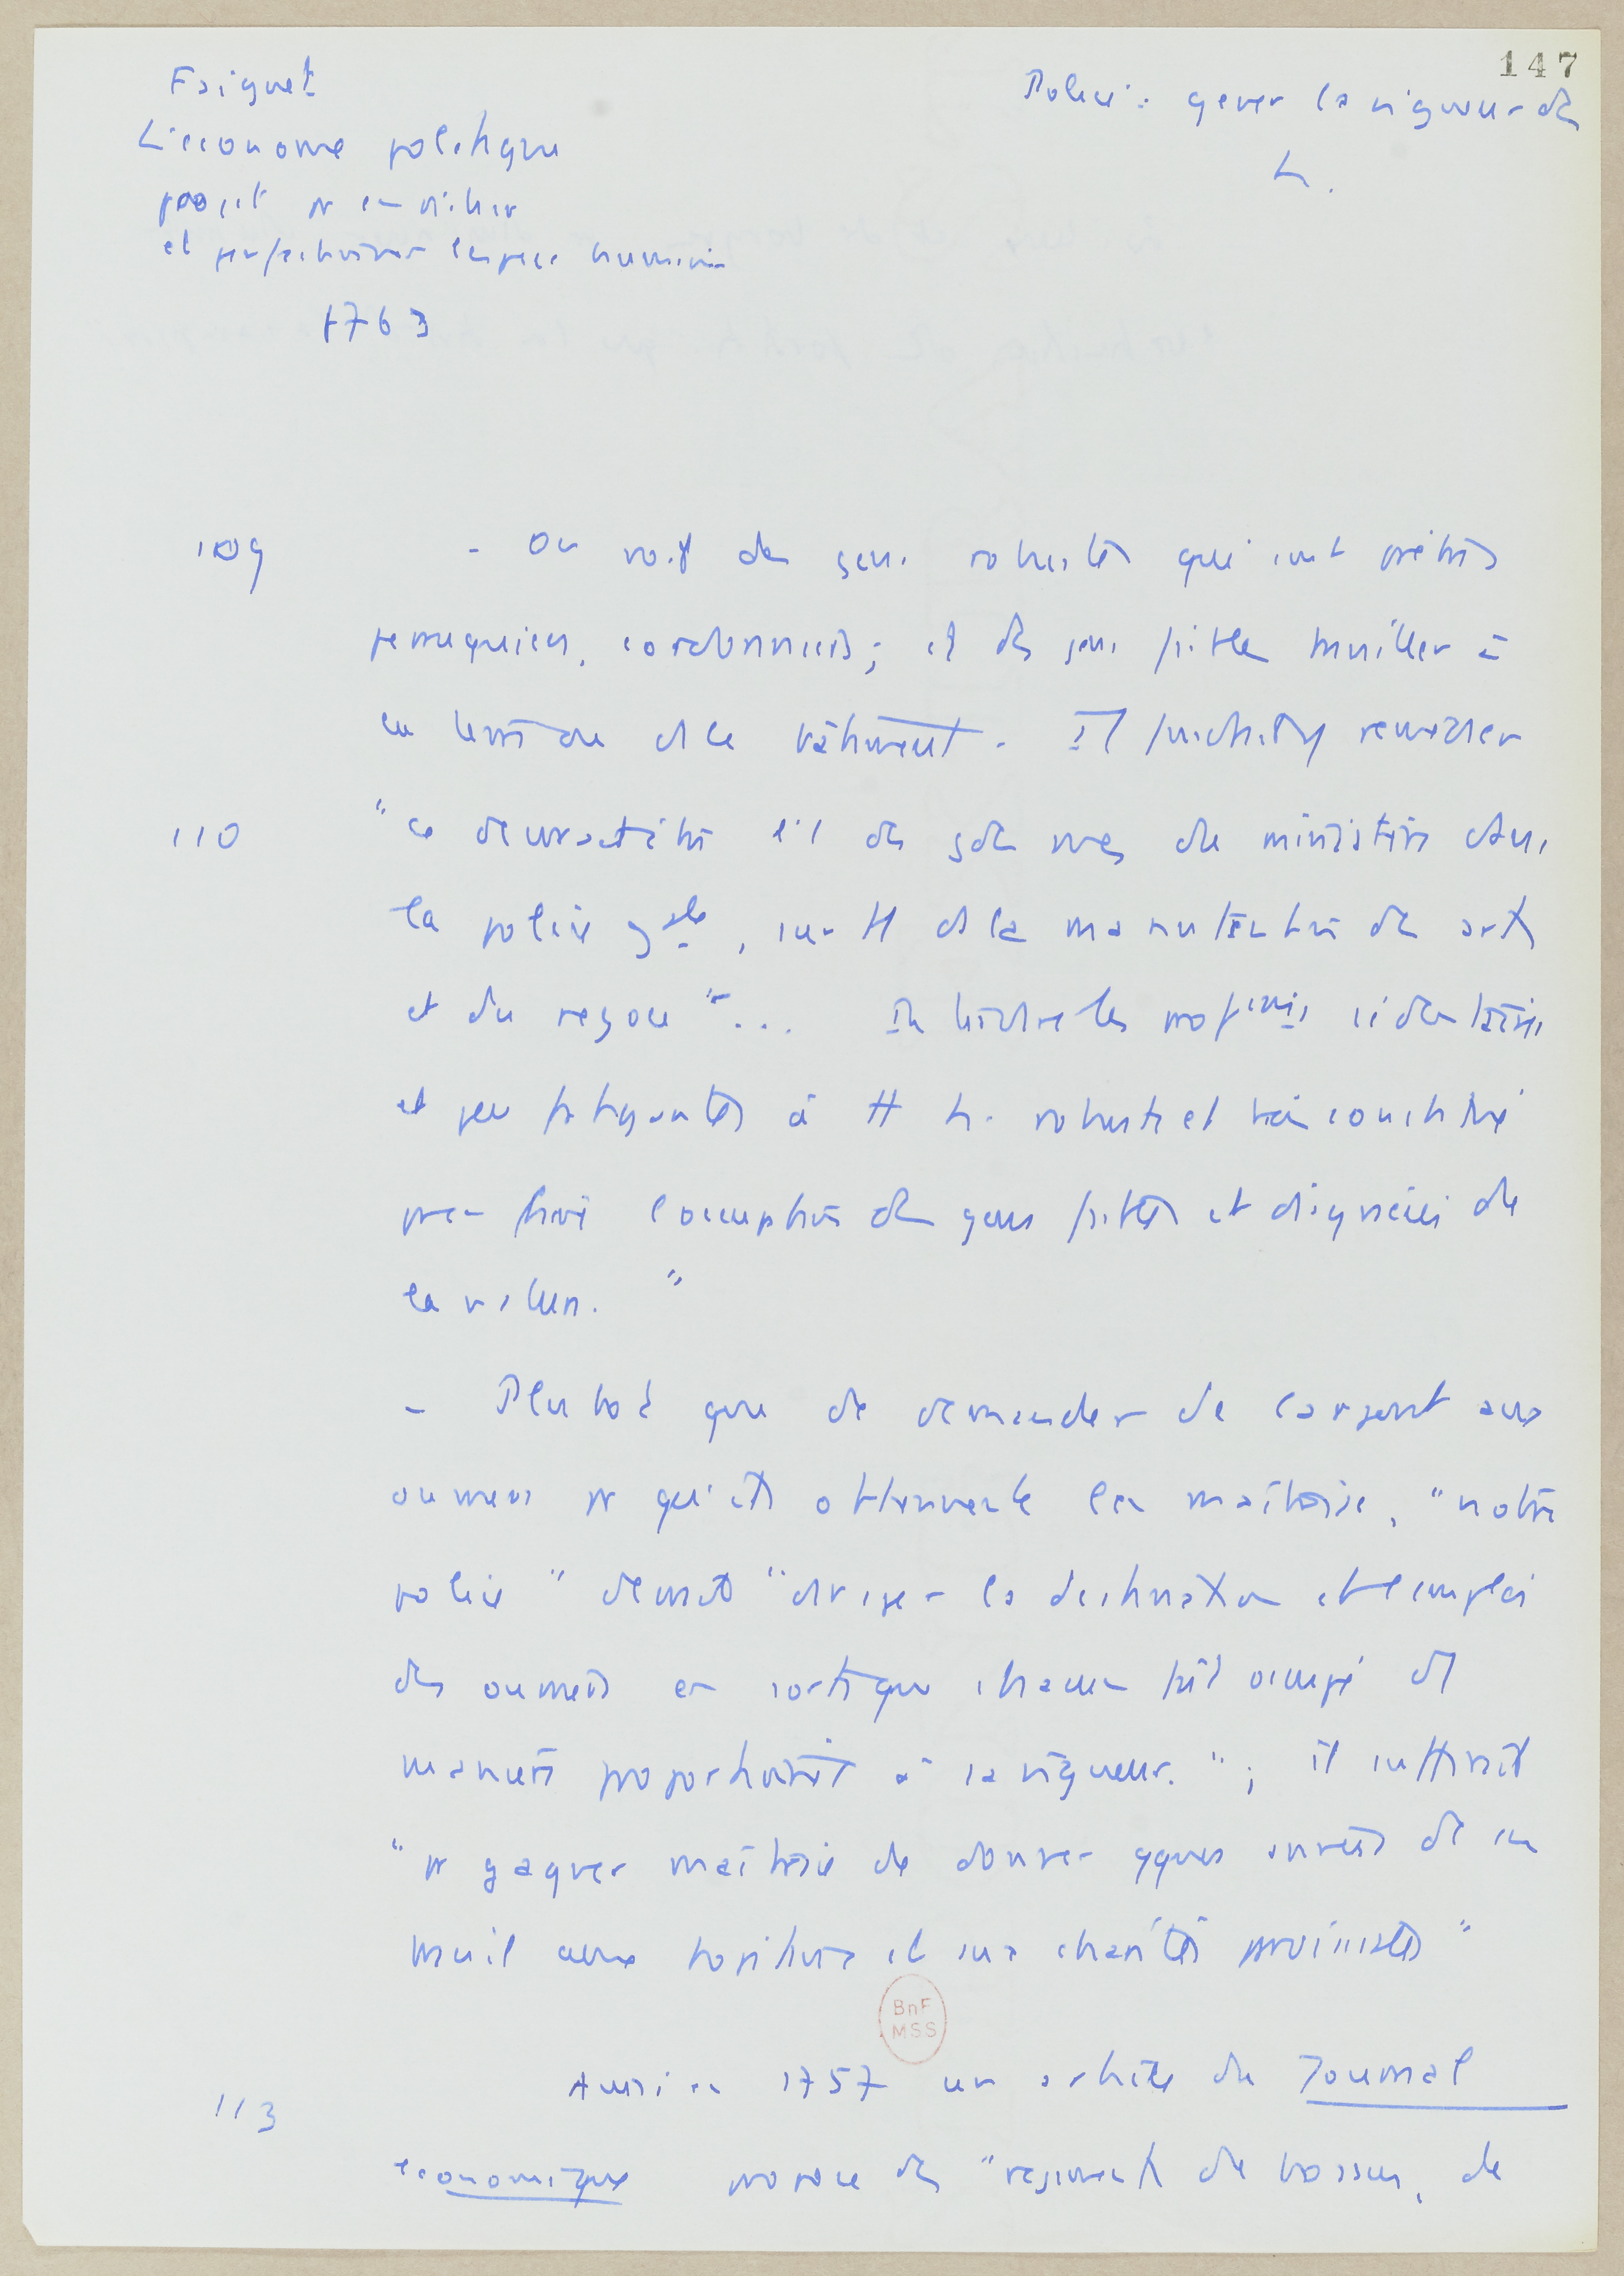 147
Faiguet
L'économie politique
projet pr enrichir
et perfectionner l'espèce humaine
1763
Police : gérer la vigueur des
h.
109 - On voit des gens robustes qui sont prêtres
perruquiers, cordonniers; et des gens faibles travailler à
la terre ou ds le bâtiment. Il faudrait y remédier
110 "ce devrait être l'1 des gds du ministère dans
la police gale, surtt ds la manutention des arts
et du négoce"... Interdire les profions sédentaires
et peu fatigantes à tt h. robuste et bien constitué
pr en faire l'occupation des gens faibles et disgraciés de
la nature. "
- Plutôt que de demander de l'argent aux
ouvriers pr qu'ils obtiennent la maîtrise, "notre
police" devrait "diriger la destination et l'emploi
des ouvriers en sorte que chacun fût occupé d
manière proportionnée à sa vigueur."; il suffirait
"pr gagner maîtrise de donner qques années de son
travail aux hôpitaux et aux charités provinciales"
BnF
MSS
113 Aussi en 1757 un article du Journal
économique propose des "régiments de bossus, de